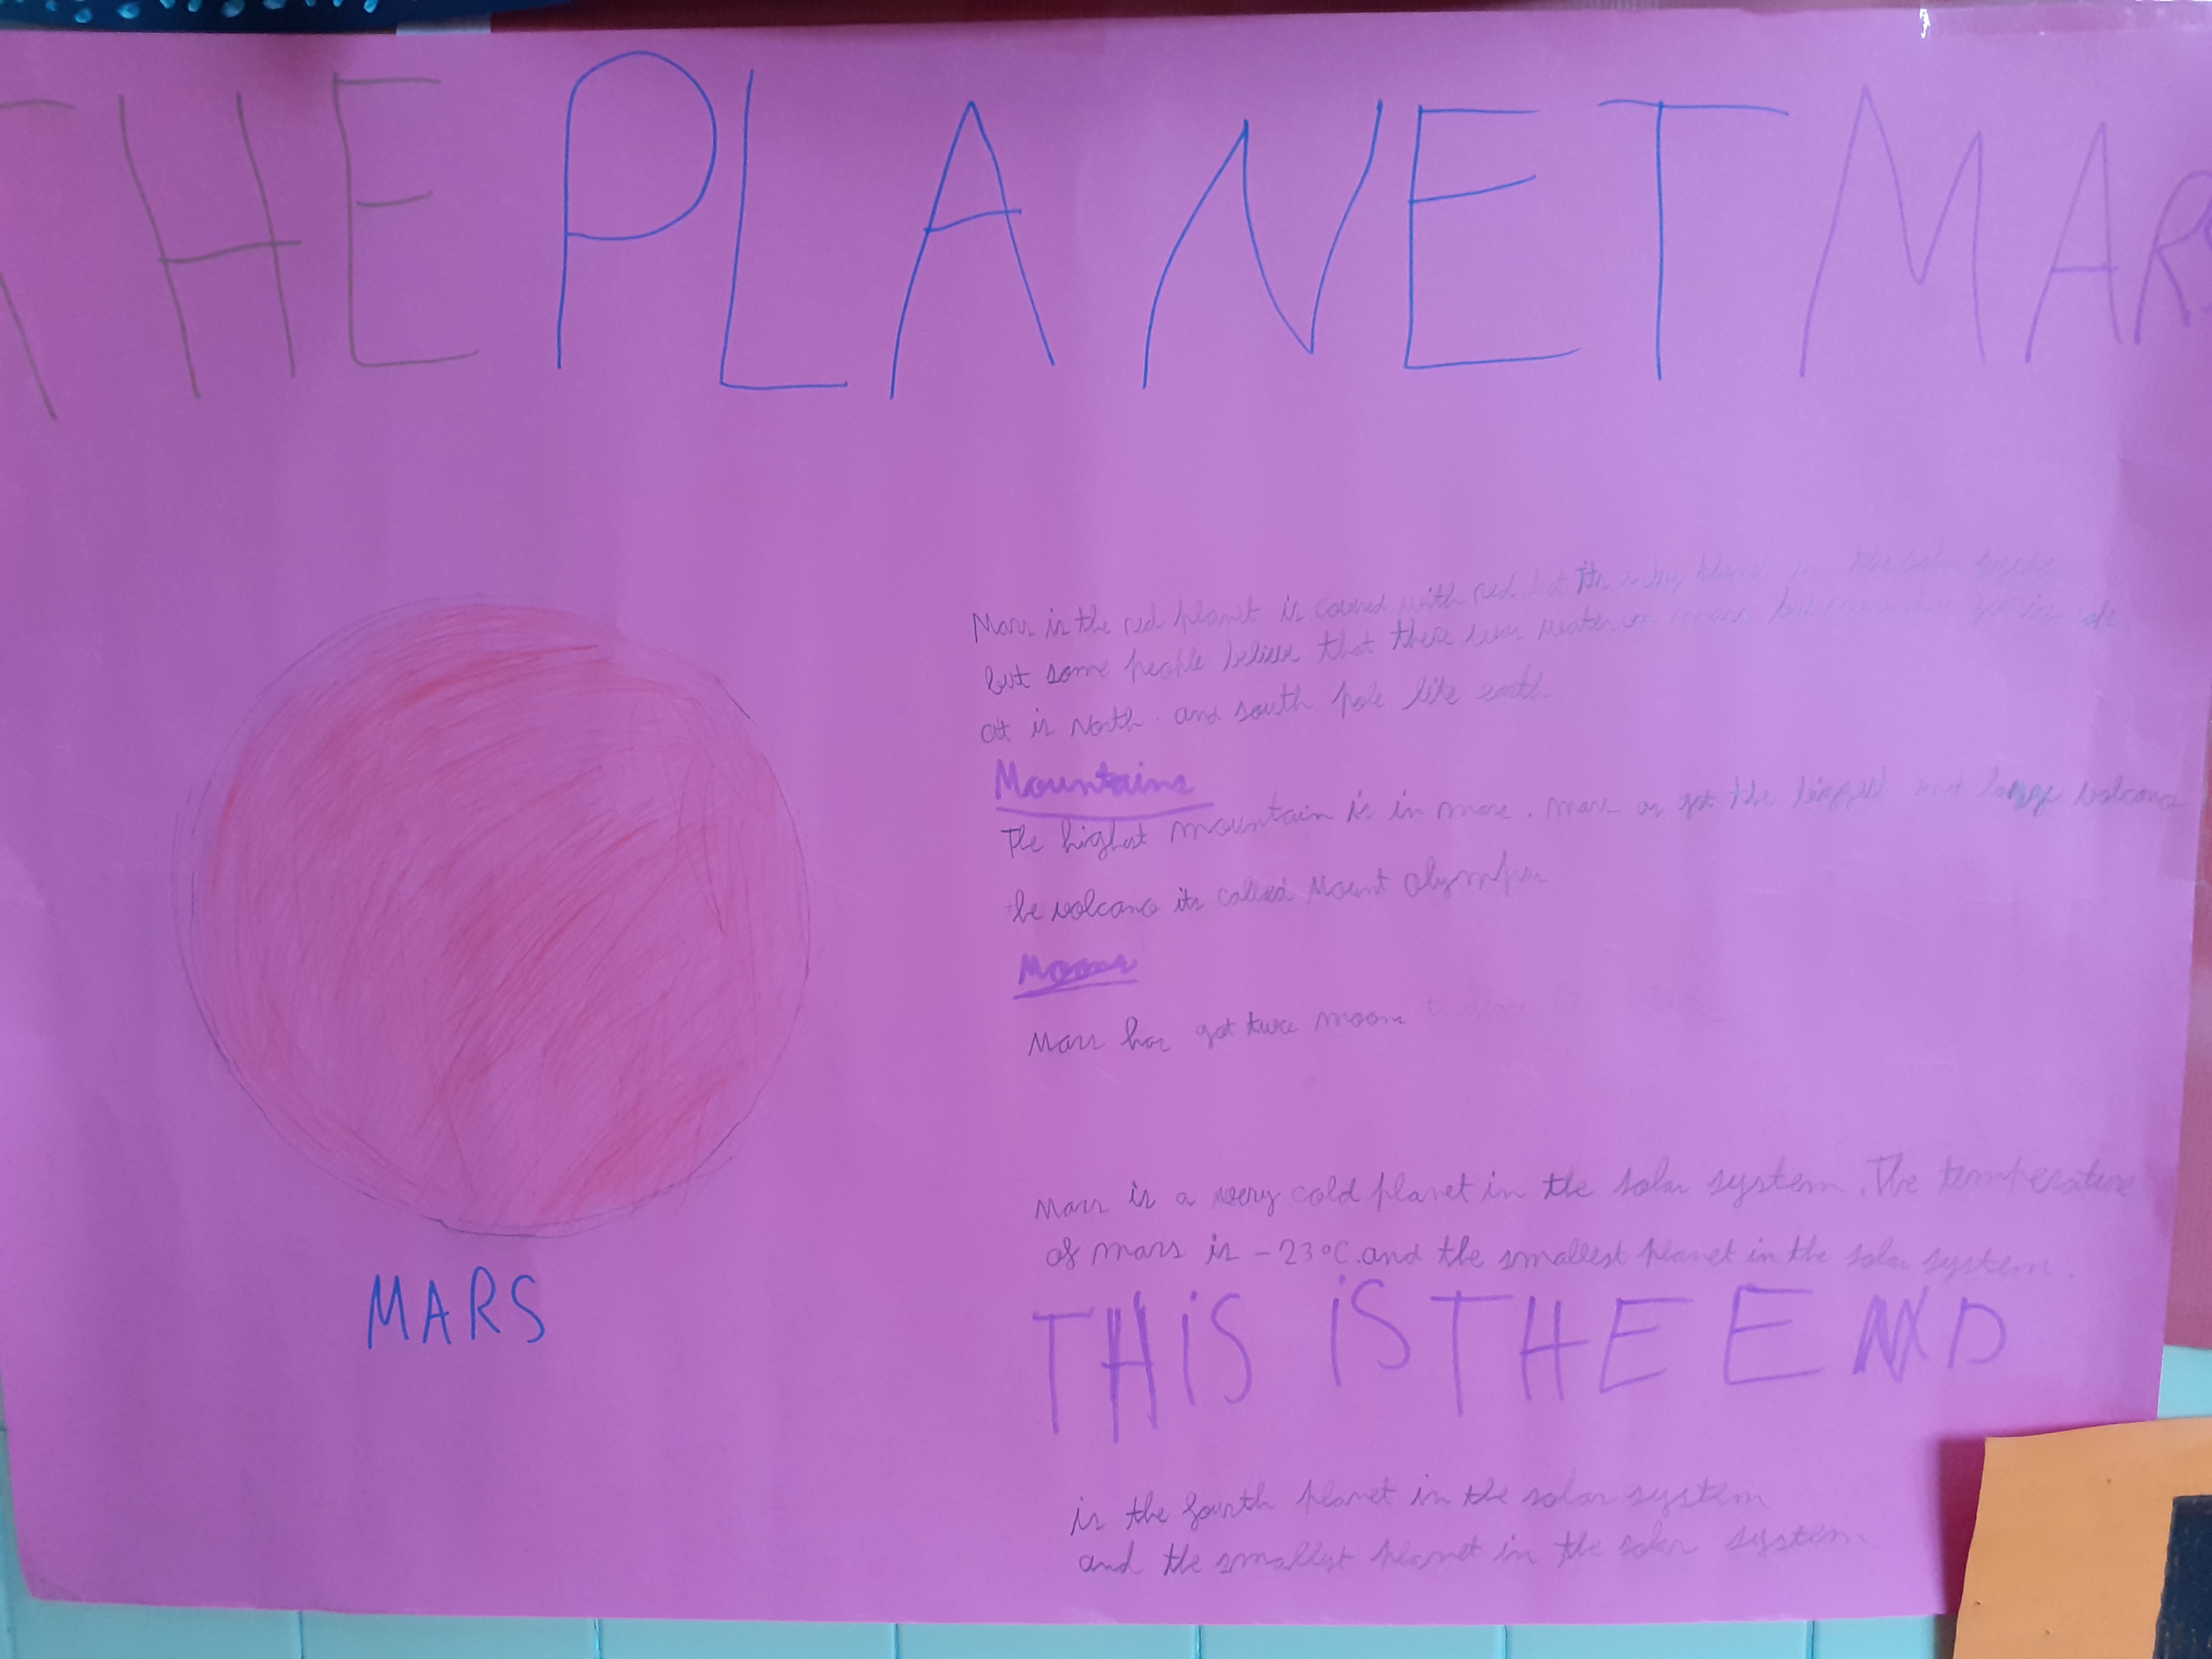 THE PLANET MARS
Mars is the red planet is covered with red but its a dry planet in the solar system
but some people believe that there was water on mars but
is North and south pole like earth
Mountains
The highest mountain is in mars. mars got the biggest and large volcano
the volcano its called Mount Olympus
Moons
Mars has got two moons
Mars is a very cold planet in the solar system. The temperature
of mars is -23°C.and the smallest planet in the solar system.
THiS iS THE END
is the fourth planet in the solar system
and the smallest planet in the solar system
MARS